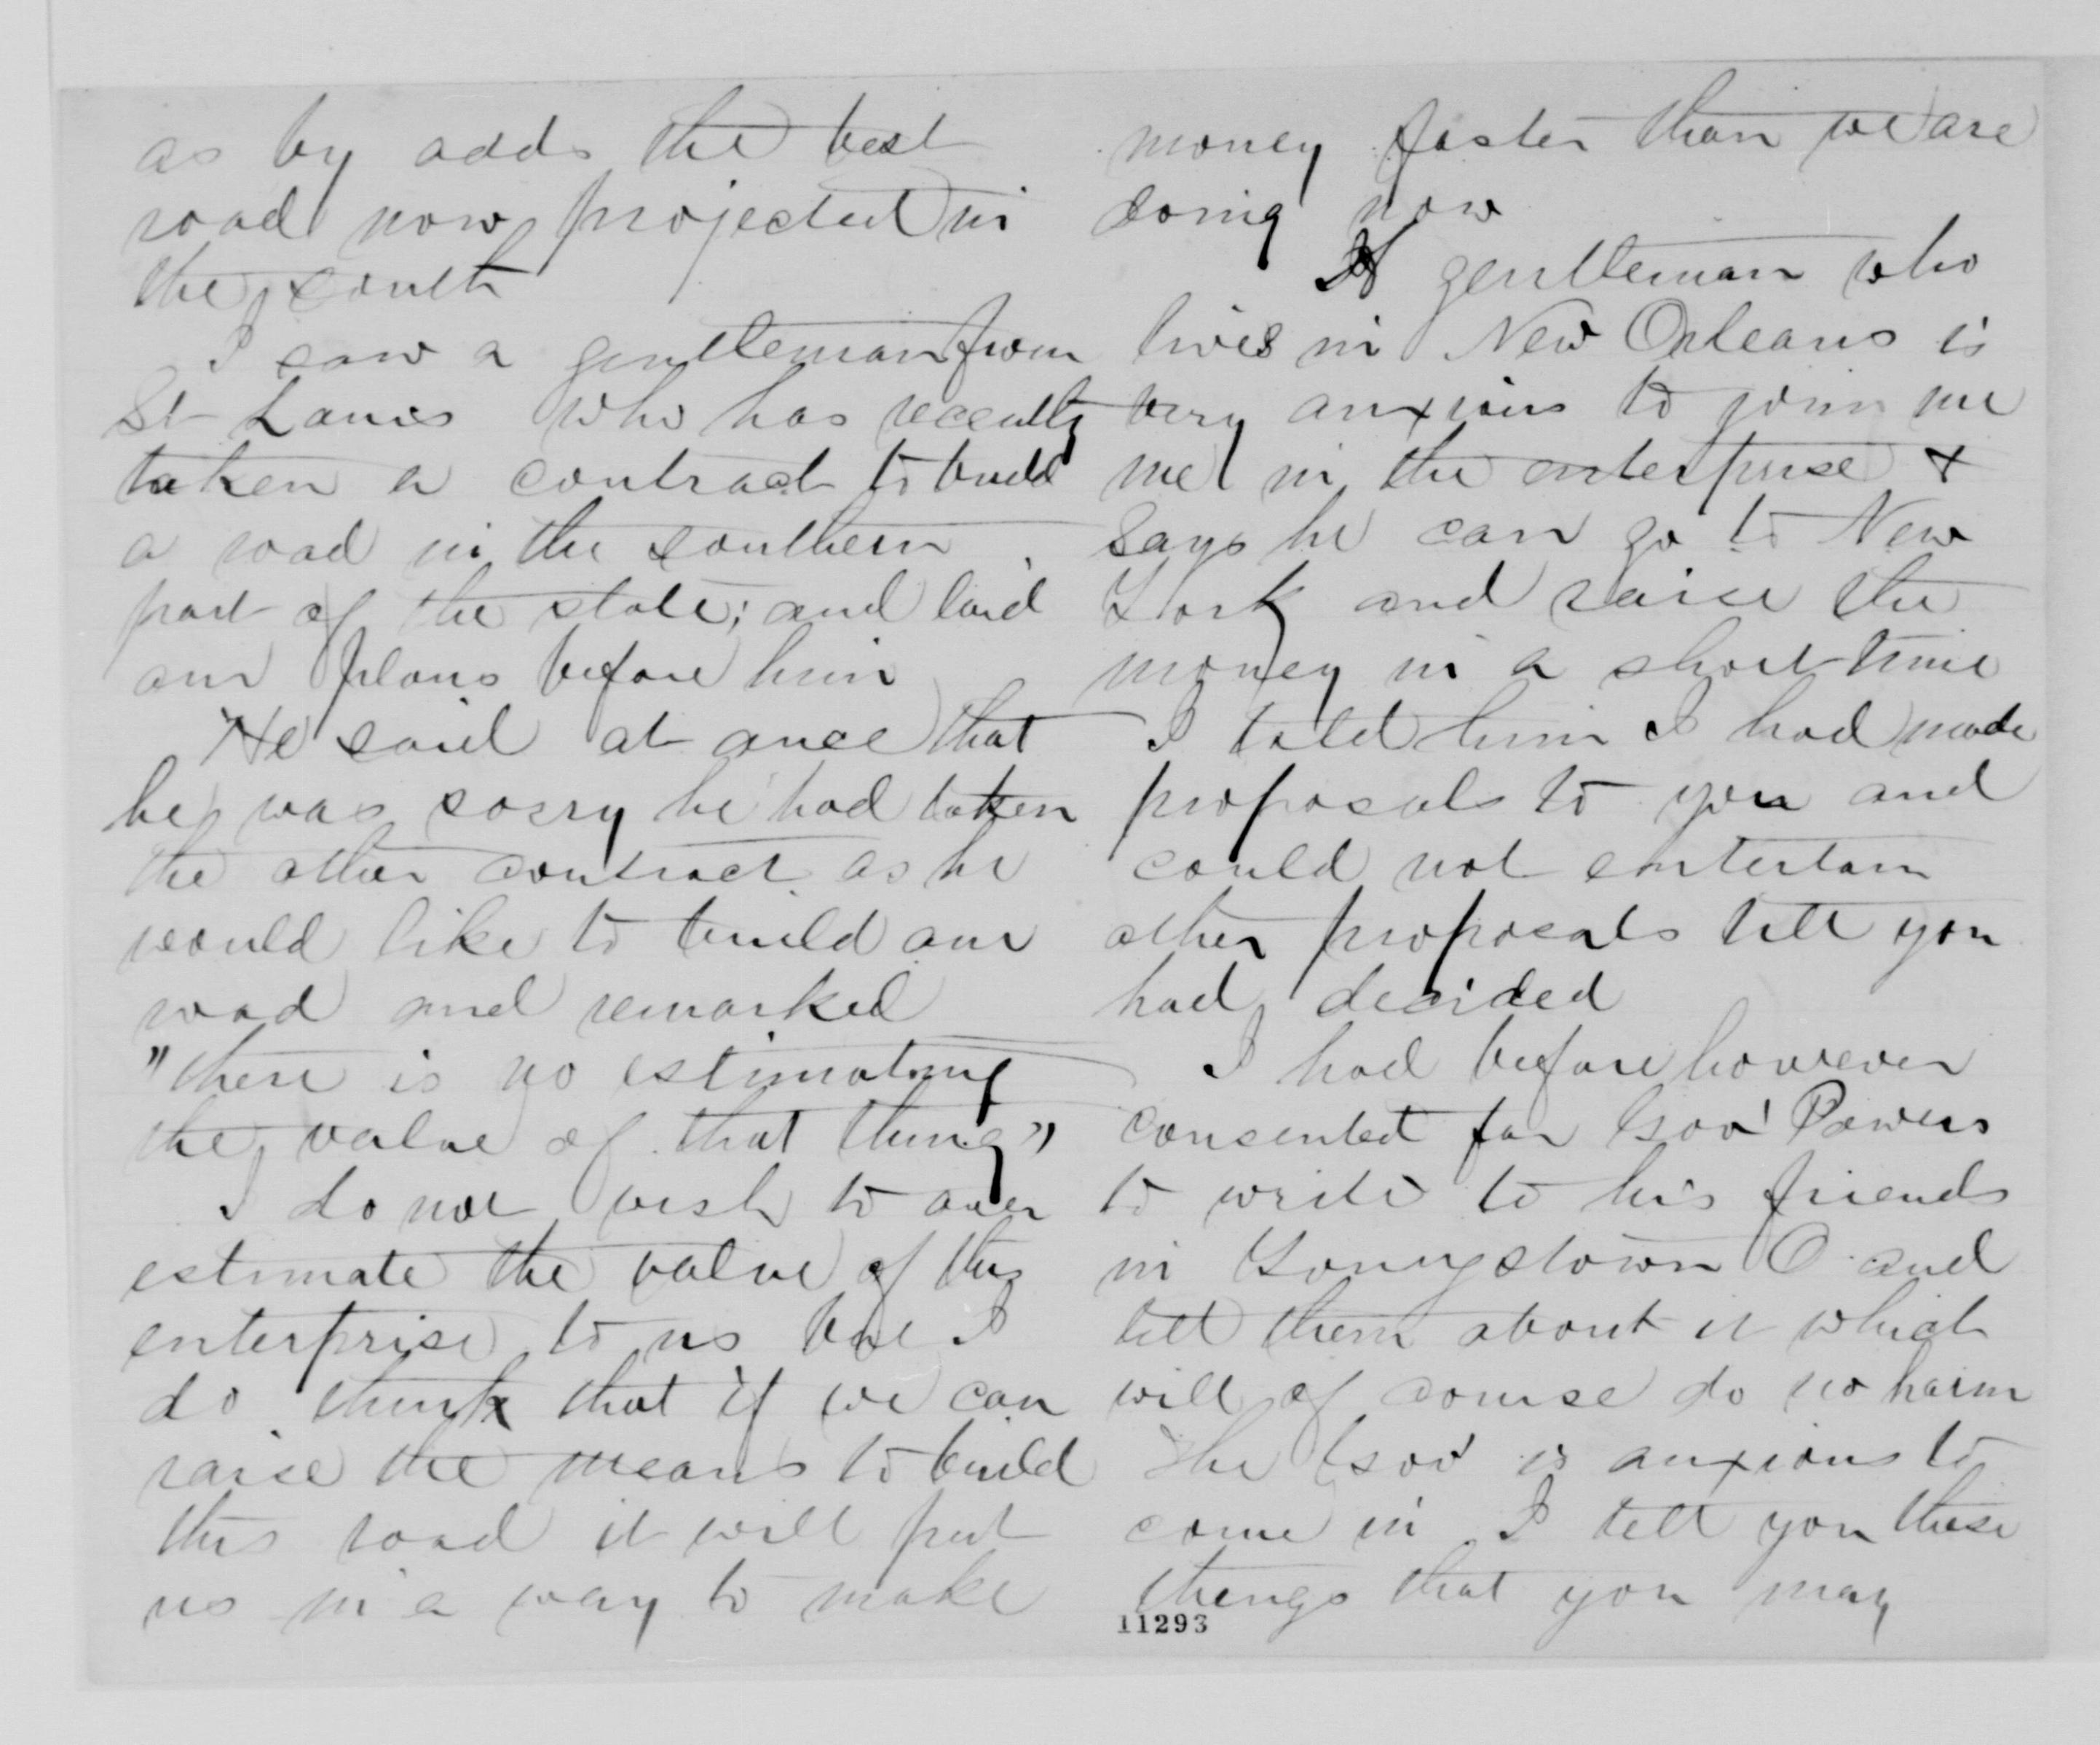 as by odds the best
road now projected in
the south
I saw a gentleman from
St Louis who has recently
taken a contract to build
a road in the southern
part of the state; and laid
our plans before him
He said at once that
he was sorry he had taken
the other contract as he
would like to build our
road and remarked
"there is no estimating
the value of that thing"
I do not wish to over
estimate the value of this
enterprise to us but I
do think that if we can
raise the means to build
this road it will put
us in a way to make
money faster than we are
doing now
A gentleman who
lives in New Orleans is
very anxious to join me
me in the enterprise &
says he can go to New
York and raise the
money in a short time
I told him I had made
proposals to you and
could not entertain
other proposals till you
had decided
I had before however
consented for Gov' Powers
to write to his friends
in Youngstown O and
tell them about it which
will of course do no harm
The Gov' is anxious to
come in I tell you these
things that you may
11293